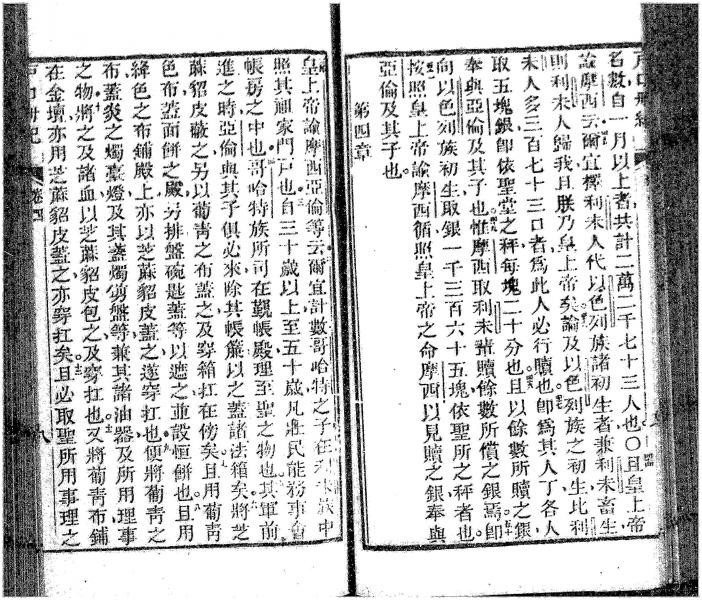 名數自一月以上者共計二萬二千七十三人也〇且皇上帝
諭摩西云爾宜擇利未人代以色列族諸初生者兼利未畜生
則利未人歸我且朕乃皇上帝矣論及以色列族之初生比利
未人多三百七十三口者為此人必行贖也卽為其人丁各人
取五塊銀卽依聖堂之秤每塊二十分也且以餘數所贖之銀
奉與亞倫及其子也惟摩西取利未諸贖餘數所償之銀焉卽
向以色列族初生取銀一千三百六十五塊依聖所之秤者也
按照皇上帝諭摩西循照皇上帝之命摩西以見贖之銀奉與
亞倫及其子也
第四章
皇上帝諭摩西亞倫等云爾宜計數哥哈特之子在利未族中
照其祖家門戶也自三十歲以上至五十歲凡壯民能務事會
帳房之中也哥哈特族所司在覲帳殿理至聖之物也其軍前
進之時亞倫與其子俱必來除其帳簾以之蓋諸法箱矣將芝
蔴貂皮蔽之另以葡青之布蓋之及穿箱扛在傍矣且用葡青
色布蓋面餅之殿另排盤碗匙蓋等以遮之並設恒餅也且用
絳色之布鋪殿上亦以芝蔴貂皮蓋之遂穿扛也便將葡青之
布蓋炎之燭臺燈及其蓋燭剪盤等兼其諸油器及所用理事
之物將之及諸皿以芝蔴貂皮包之及穿扛也又將葡青布鋪
在金壇亦用芝蔴貂皮蓋之亦穿扛矣且必取聖所用事理之
戶口冊紀
卷四